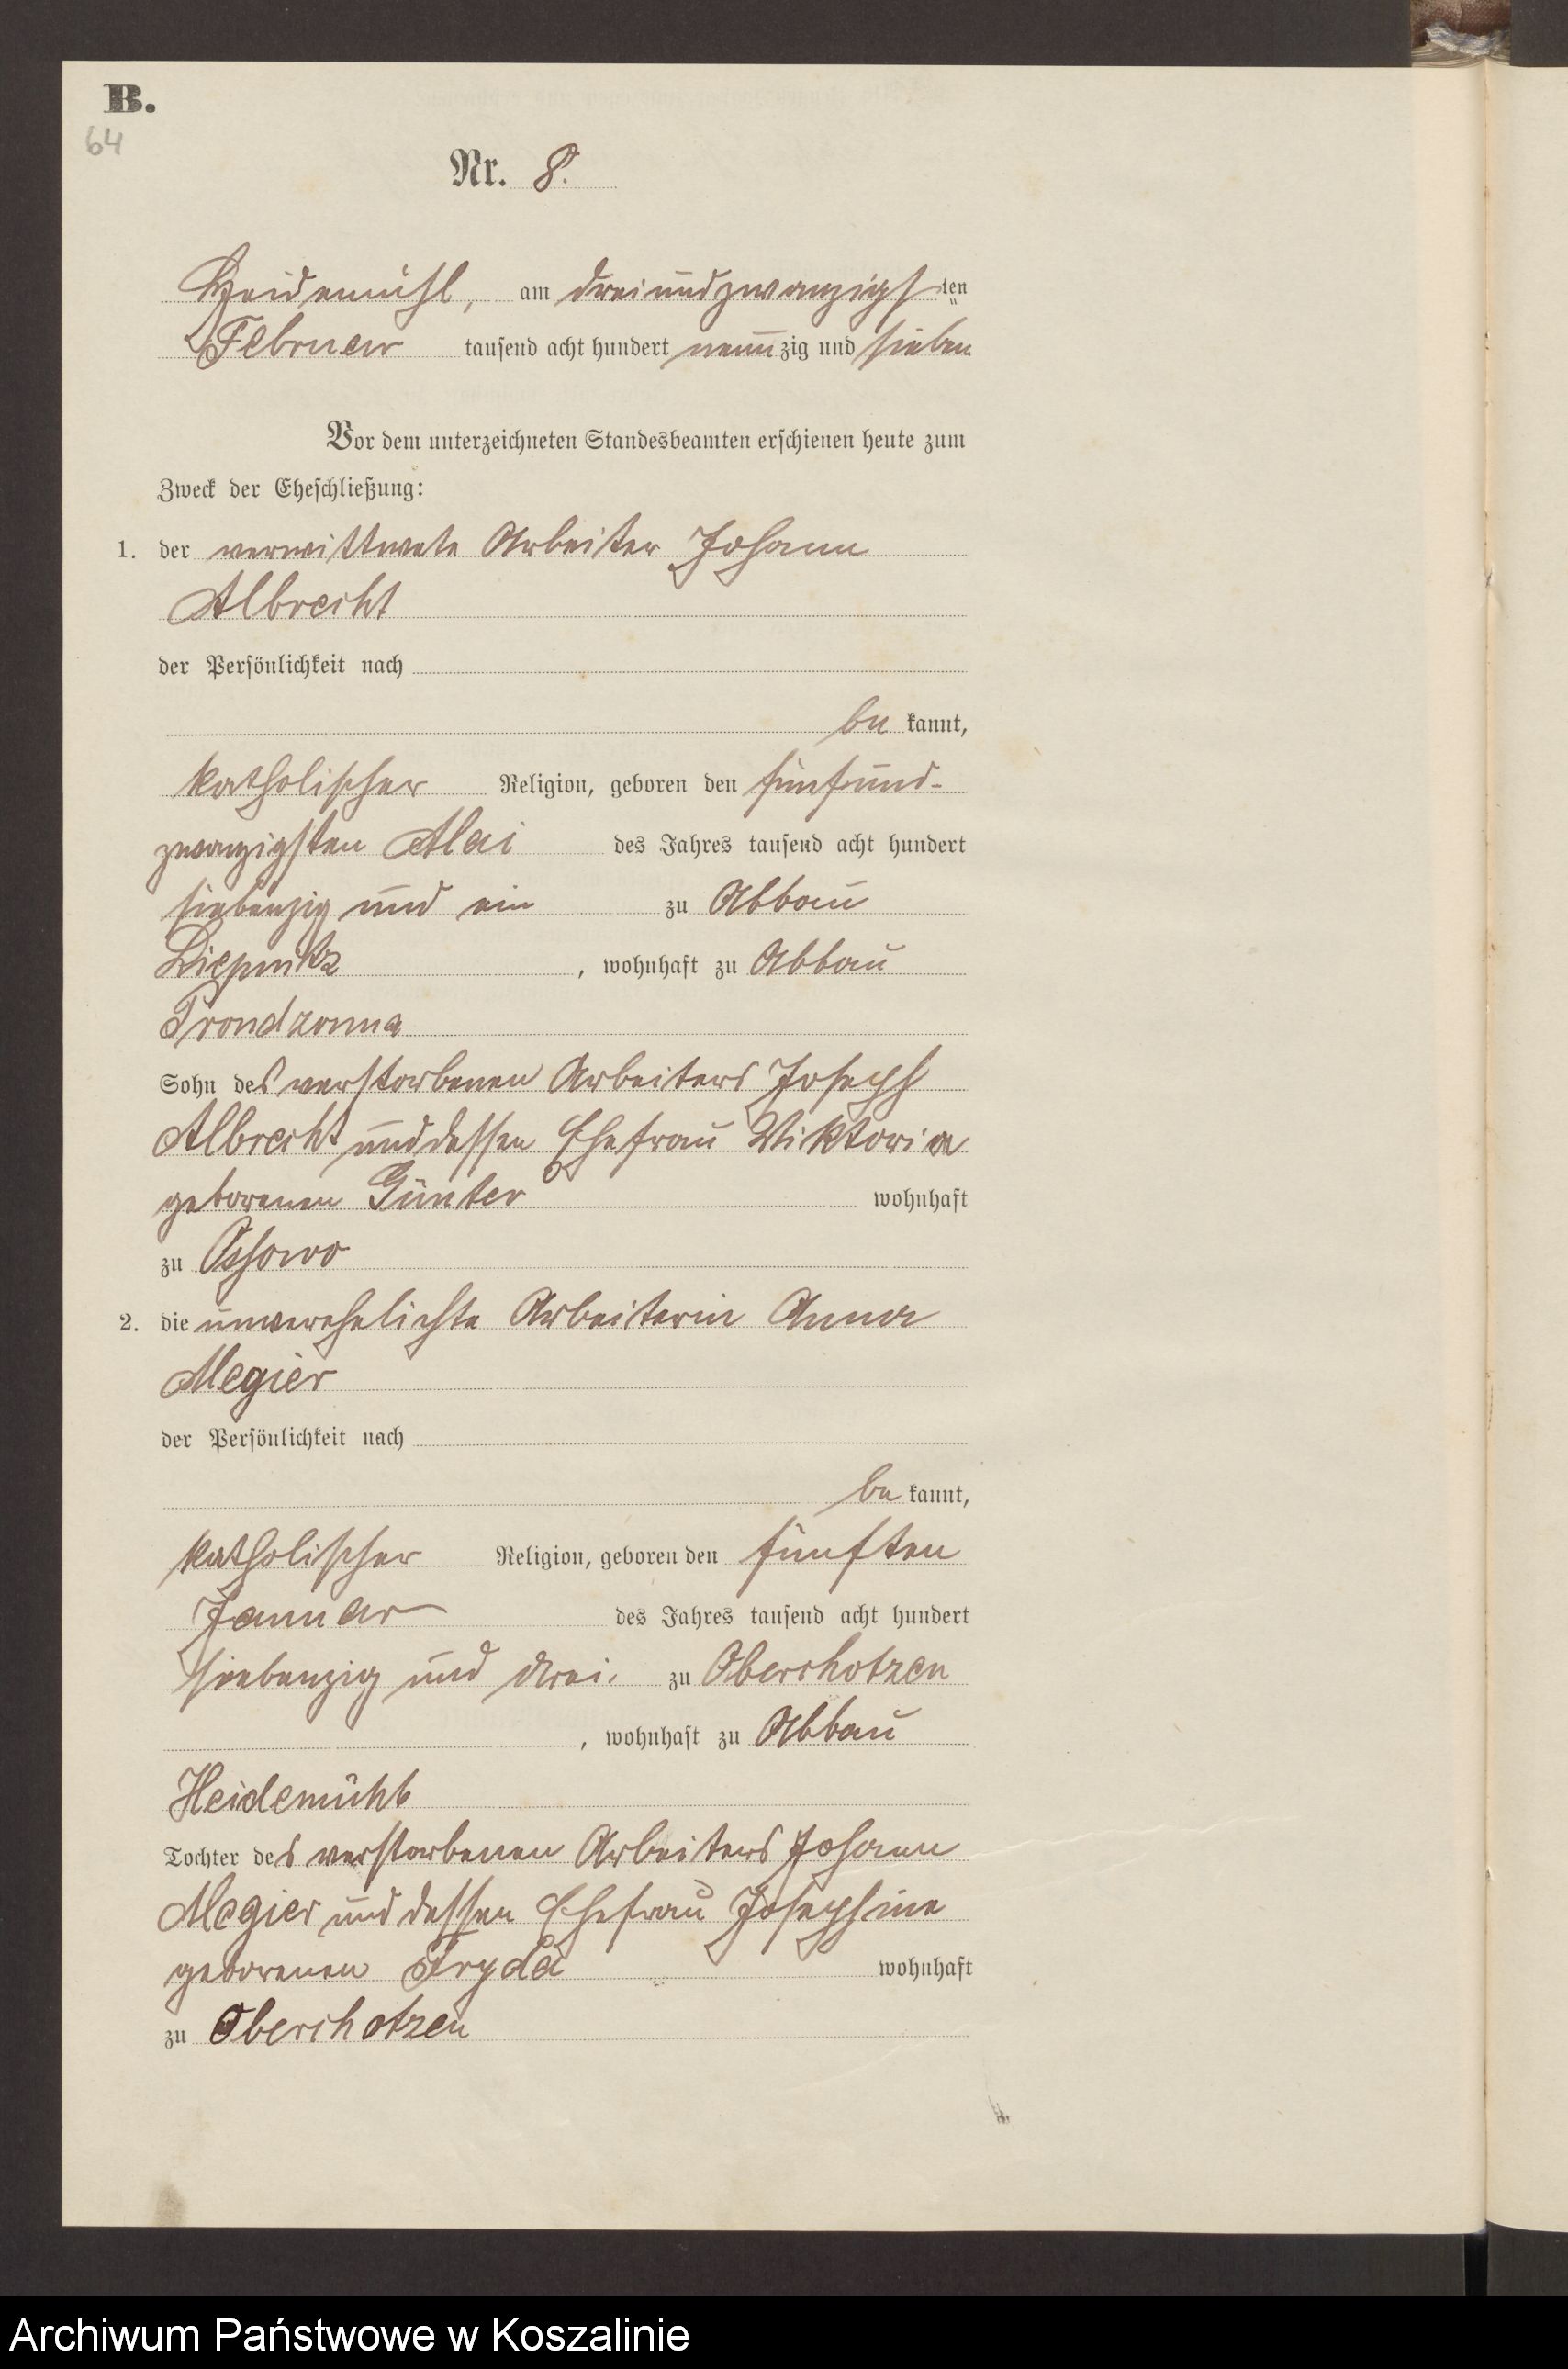 B.
64
Nr. 8.
Heidemühl, am dreiundzwanzigsten
Februar tausend acht hundert neunzig und sieben
Vor dem unterzeichneten Standesbeamten erschienen heute zum
Zweck der Eheschließung:
1. der verwittwete Arbeiter Johann
Albrecht
der Persönlichkeit nach
be kannt,
katholischer Religion, geboren den fünfund-
zwanzigsten Mai des Jahres tausend acht hundert
siebenzig und ein zu Abbau
Liepnitz, wohnhaft zu Abbau
Prondzonna
Sohn des verstorbenen Arbeiters Joseph
Albrecht und dessen Ehefrau Viktoria
geborenen Günter wohnhaft
zu Ossowo
2. die unverehelichte Arbeiterin Anna
Megier
der Persönlichkeit nach
be kannt,
katholischer Religion, geboren den fünften
Januar des Jahres tausend acht hundert
siebenzig und drei. zu Oberchotzen
, wohnhaft zu Abbau
Heidemühl
Tochter des verstorbenen Arbeiters Johann
Megier und dessen Ehefrau Josephine
geborenen Fryda wohnhaft
zu Oberchotzen
Archiwum Państwowe w Koszalinie